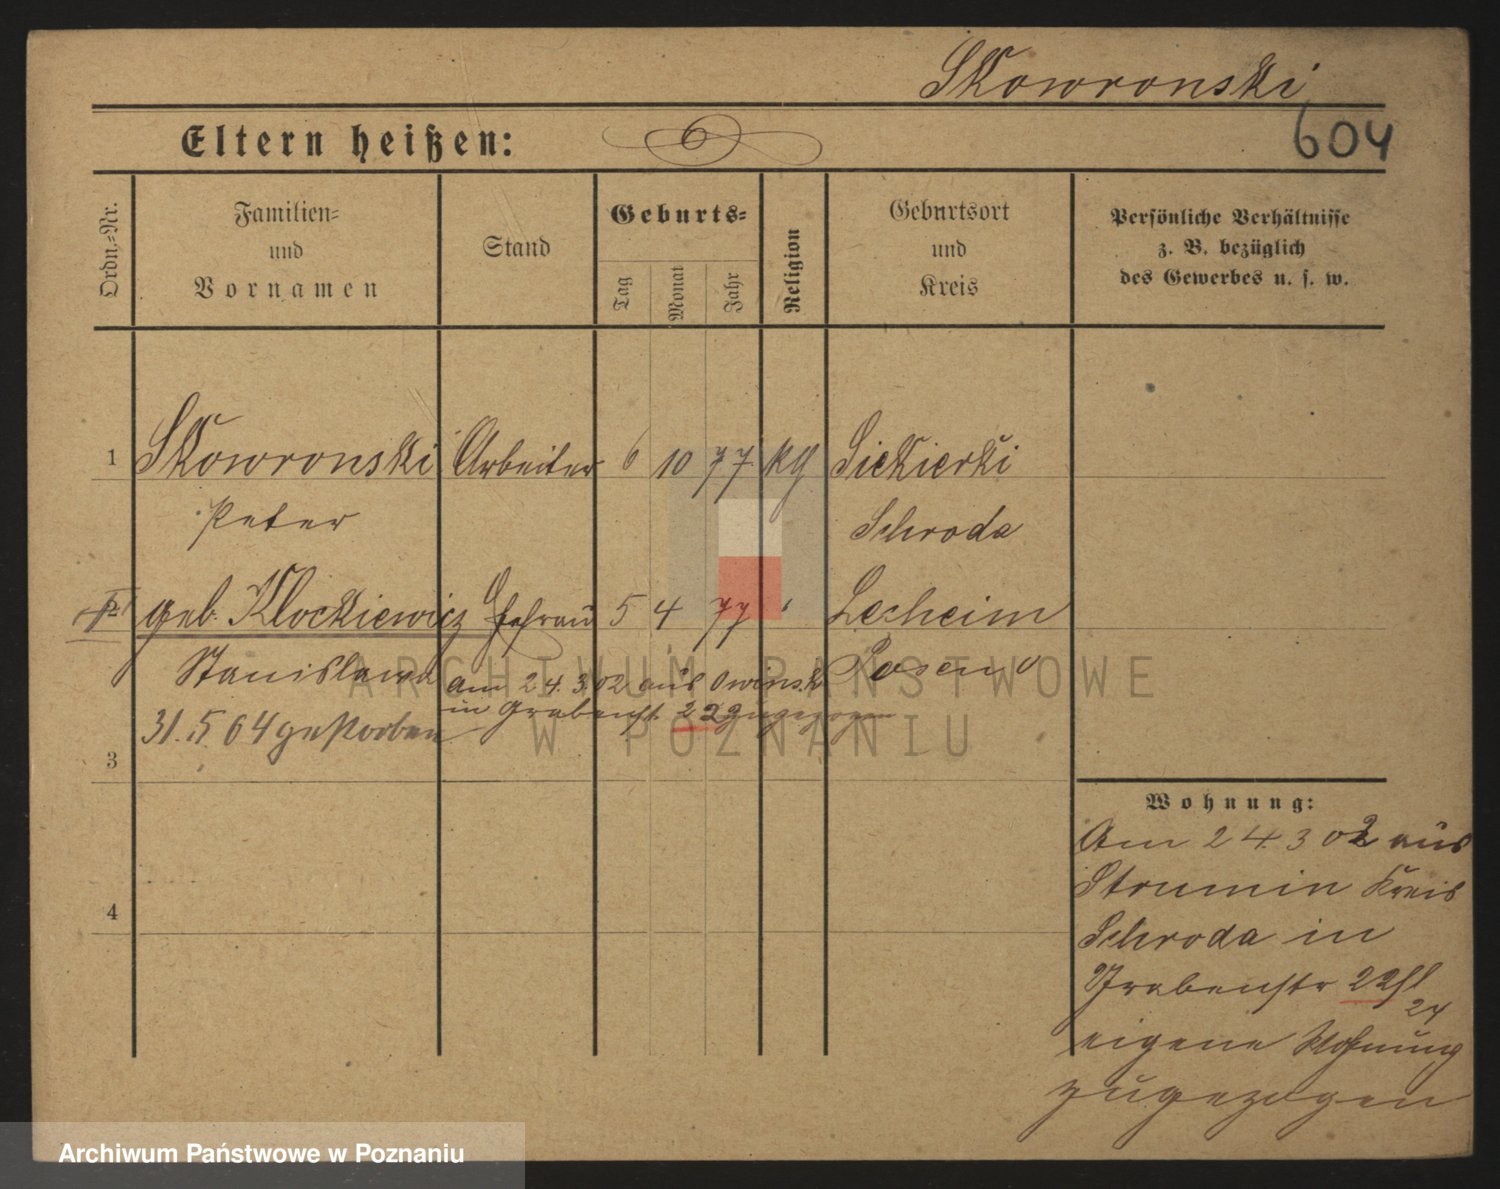 Skowronski
604
Eltern heißen:
Ordn.-Nr.
Familien-
und
Vornamen
Stand
Geburts-
Tag
Monat
Jahr
Religion
Geburtsort
und
Kreis
Persönliche Verhältnisse
z. B. bezüglich
des Gewerbes u. s. w.
1 Skowronski Arbeiter 6 10 77 Sickierki
Peter Schroda
2 geb. Klockiewicz Ehefrau 5 4 77 Lecheim
Stanislawa Posen O
am 24.3.02 aus Owinsk
in Grabenst. 22 zugezogen
31.5.04 gestorben
3
4
Wohnung:
Am 24.3 02 aus
Strumin Kreis
Schroda in
Grabenstr 22
24
eigene Wohnung
zugezogen
ARCHIWUM PAŃSTWOWE
W POZNANIU
Archiwum Państwowe w Poznaniu